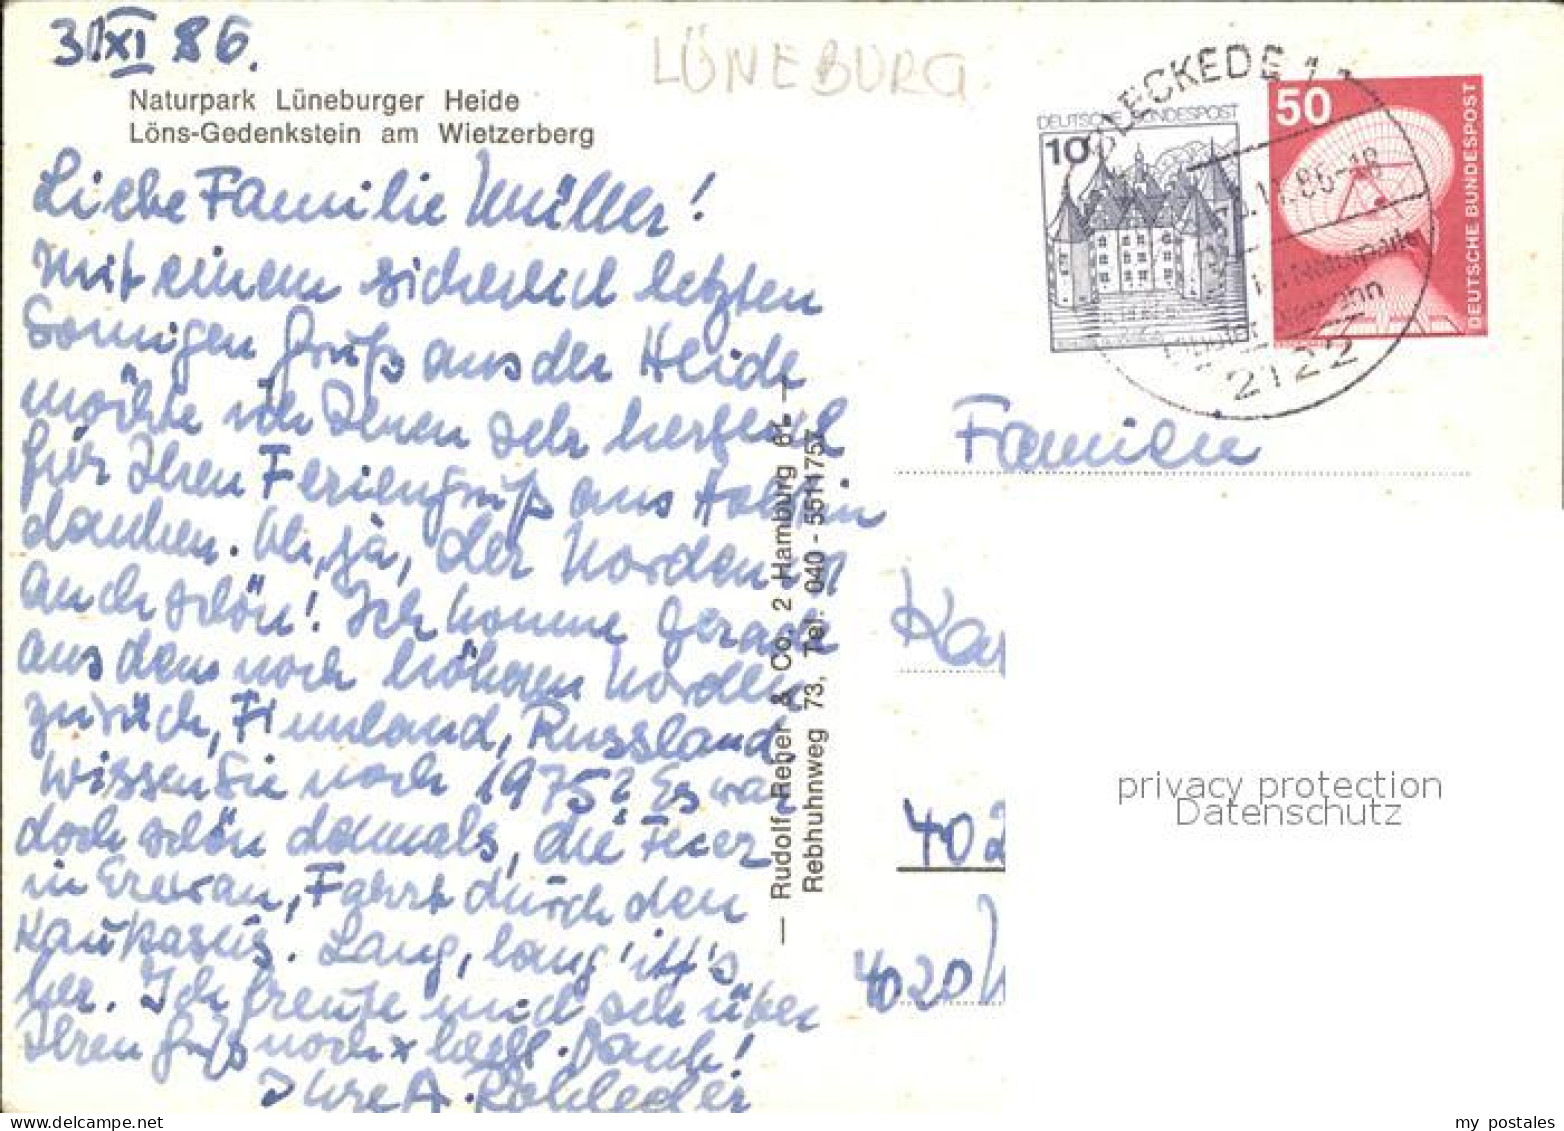 3.XI 86.
LÜNEBURG
Naturpark Lüneburger Heide
Löns-Gedenkstein am Wietzerberg
Liebe Familie Müller!
Mit einem sicherlich letzten
sonnigen Gruß aus der Heide
möchte ich Ihnen sehr herzlich
für Ihren Feriengruß aus Holstein
danken. Oh, ja, der Norden ist
auch schön! Ich komme gerade
aus dem noch höheren Norden
zurück, Finnland, Russland
Wissen Sie noch 1975? Es war
doch schön damals, die Feier
in Erewan, Fahrt durch den
Kaukasus. Lang, lang ist's
her. Ich freute mich sehr über
Ihren Gruß noch x herzl. Dank!
Ihre A. Rohleder
— Rudolf Reher & Co., 2 Hamburg 61 —
Rebhuhnweg 73, Tel. 040 - 5511757
DEUTSCHE BUNDESPOST
10
50
DEUTSCHE BUNDESPOST
BLECKEDE 1
.11.86-18
2122
Familien
Kar
402
4020
privacy protection
Datenschutz
my postales